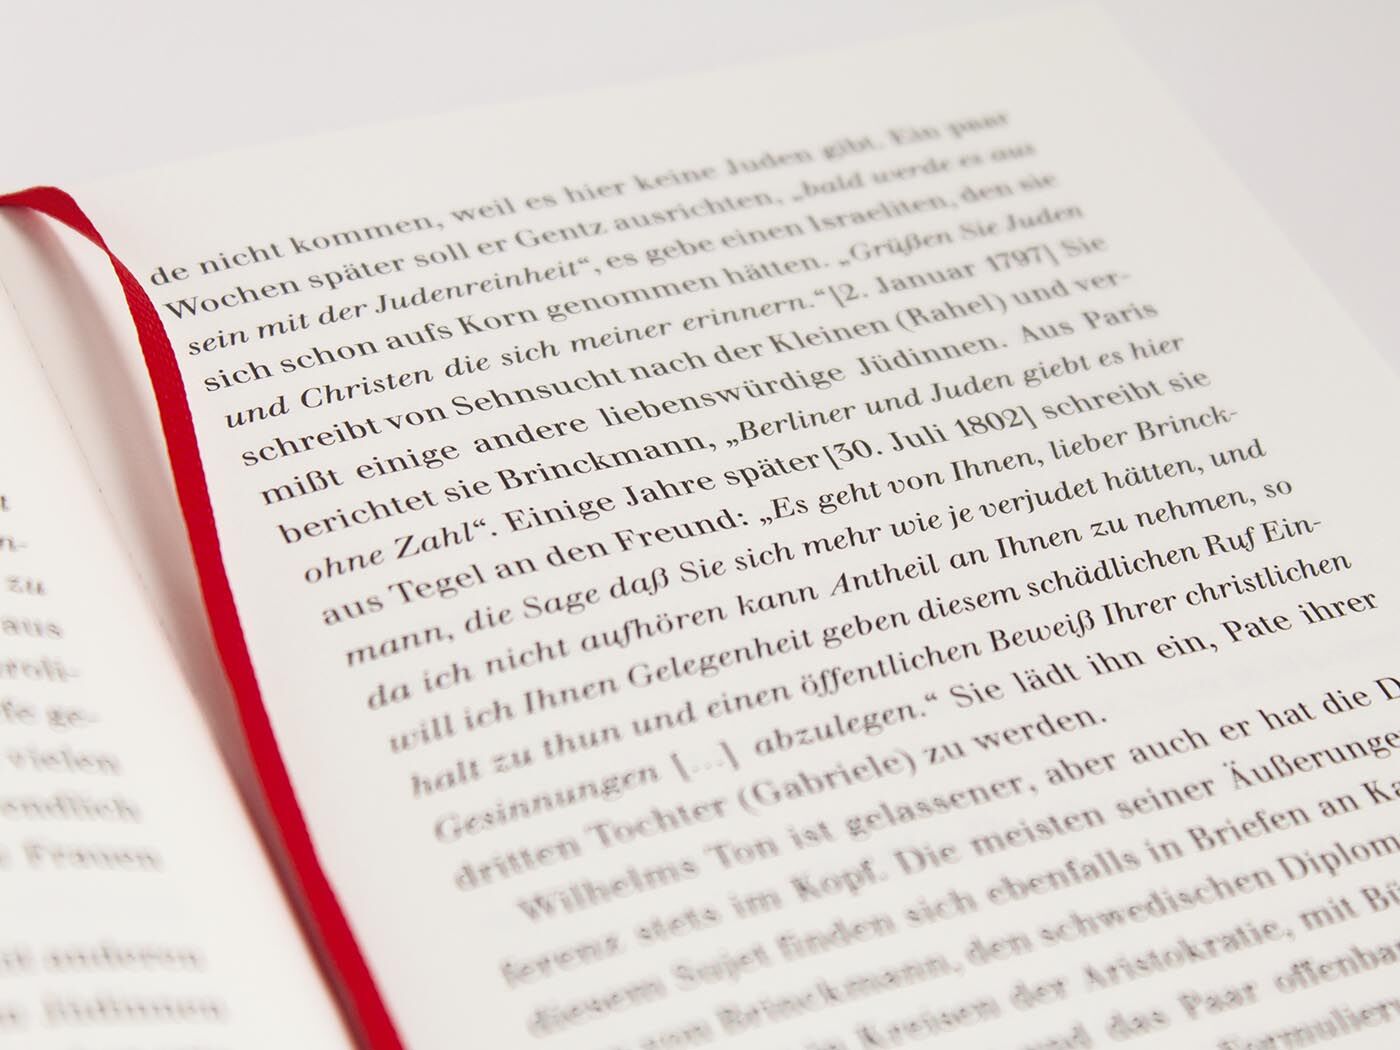 t
n-
zu
aus
roli-
fe ge-
vielen
endlich
Frauen
it anderen
Jüdinnen
de nicht kommen, weil es hier keine Juden gibt. Ein paar
Wochen später soll er Gentz ausrichten, „bald werde es aus
sein mit der Judenreinheit“, es gebe einen Israeliten, den sie
sich schon aufs Korn genommen hätten. „Grüßen Sie Juden
und Christen die sich meiner erinnern.“ [2. Januar 1797] Sie
schreibt von Sehnsucht nach der Kleinen (Rahel) und ver-
mißt einige andere liebenswürdige Jüdinnen. Aus Paris
berichtet sie Brinckmann, „Berliner und Juden giebt es hier
ohne Zahl“. Einige Jahre später [30. Juli 1802] schreibt sie
aus Tegel an den Freund: „Es geht von Ihnen, lieber Brinck-
mann, die Sage daß Sie sich mehr wie je verjudet hätten, und
da ich nicht aufhören kann Antheil an Ihnen zu nehmen, so
will ich Ihnen Gelegenheit geben diesem schädlichen Ruf Ein-
halt zu thun und einen öffentlichen Beweiß Ihrer christlichen
Gesinnungen [...] abzulegen.“ Sie lädt ihn ein, Pate ihrer
dritten Tochter (Gabriele) zu werden.
Wilhelms Ton ist gelassener, aber auch er hat die D
ferenz stets im Kopf. Die meisten seiner Äußerunge
diesem Sujet finden sich ebenfalls in Briefen an Ka
von Brinckmann, den schwedischen Diplom
in Kreisen der Aristokratie, mit Bü
und das Paar offenba
Formulier